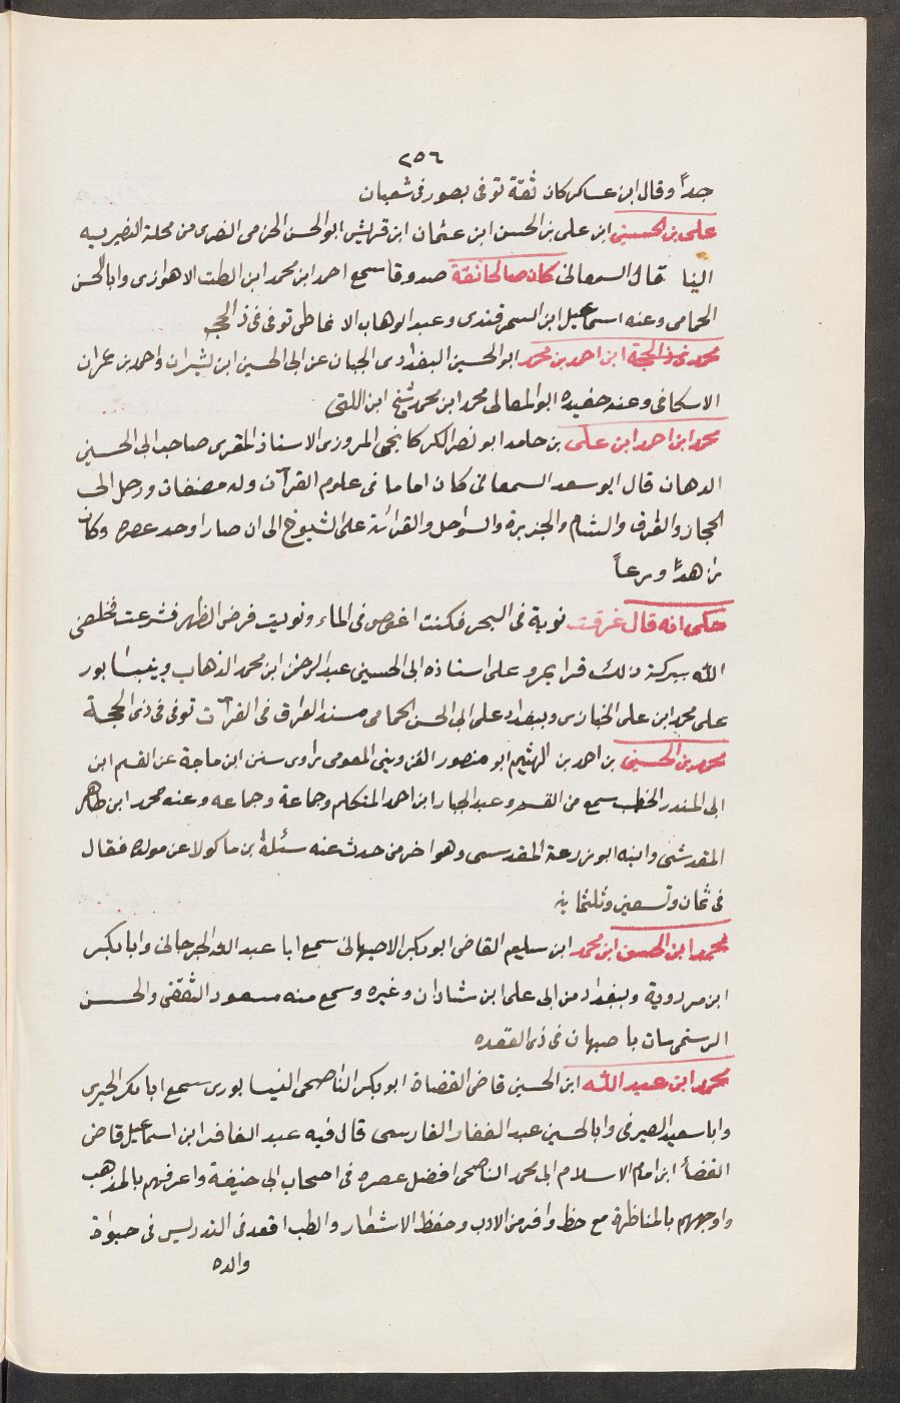 ٢٥٦
جداً وقال ابن عساكر كان ثقة توفى بصور فى شعبان
على بن الحسين ابن على بن الحسن ابن عثمان ابن قريش ابو الحسن الحرمى النصرى من محلة النصريه
البنا قال السمعانى كان صالحا ثقة صدوقا سمع احمد ابن محمد ابن الصلت الاهوازى وابا الحسن
الحمامى وعنه اسماعيل ابن السمرقندى وعبد الوهاب الانماطى توفى فى ذى الحجه
محمد فى ذى الحجة ابن احمد بن محمد ابو الحسين البغدادى الجبان عن ابى الحسين ابن بشران واحمد بن عمران
الاسكافى وعنه حفيده ابو المعالى محمد ابن محمد شيخ ابن اللتى
محمد ابن احمد ابن على بن حامد ابو نصر الكركانجى المروزى الاستاذ المقرى صاحب ابى الحسين
الدهان قال ابو سعد السمعانى كان اماما فى علوم القرآن وله مصنفات ورحل الى
الحجاز والعراق والشام والجزيرة والسواحل والقرائة على الشيوخ الى ان صار اوحد عصره وكان
زاهداً ورعاً
حكى انه قال غرقت نوبة فى البحر فكنت اغوص فى الماء ونويت فرض الظهر فشرعت فخلصنى
الله ببركة ذلك قرا بمرو على استاذه ابى الحسين عبد الرحمن ابن محمد الدهان وبنيسابور
على محمد ابن على الخبازى وببغداد على ابى الحسن الحمامى مسند العراق فى القرآت توفى فى ذى الحجة
محمد بن الحسين بن احمد بن الهثيم ابو منصور القزوينى المقومى راوى سنن ابن ماجة عن القسم ابن
ابى المنذر الخطيب سمع من القسم وعبد الجبار ابن احمد المتكلم وجماعة وجماعه وعنه محمد ابن طاهر
المقدسى وابنه ابو زرعة المقدسى وهو اخر من حدث عنه سئله ابن ماكولا عن مولده فقال
فى ثمان وتسعين وثلثمايه
محمد ابن الحسن ابن محمد ابن سليم القاضى ابو بكر الاصبهانى سمع ابا عبد الله الجرجانى وابا بكر
ابن مردوية وببغداد من ابى على ابن شاذان وغيره وسمع منه مسعود الثقفى والحسن
الرستمى مات باصبهان فى ذى القعده
محمد ابن عبد الله ابن الحسين قاضى القضاة ابو بكر الناصحى النيسابورى سمع ابا بكر الحيرى
وابا سعيد الصيرفى وابا الحسين عبد الغفار الفارسى قال فيه عبد الغافر ابن اسماعيل قاضى
القضاة ابن امام الاسلام ابى محمد الناصحى افضل عصره فى اصحاب ابى حنيفة واعرفهم بالمذهب
واوجههم بالمناظرة مع حظ وافر من الادب وحفظ الاشعار والطب اقعد فى التدريس فى حيواة
والده